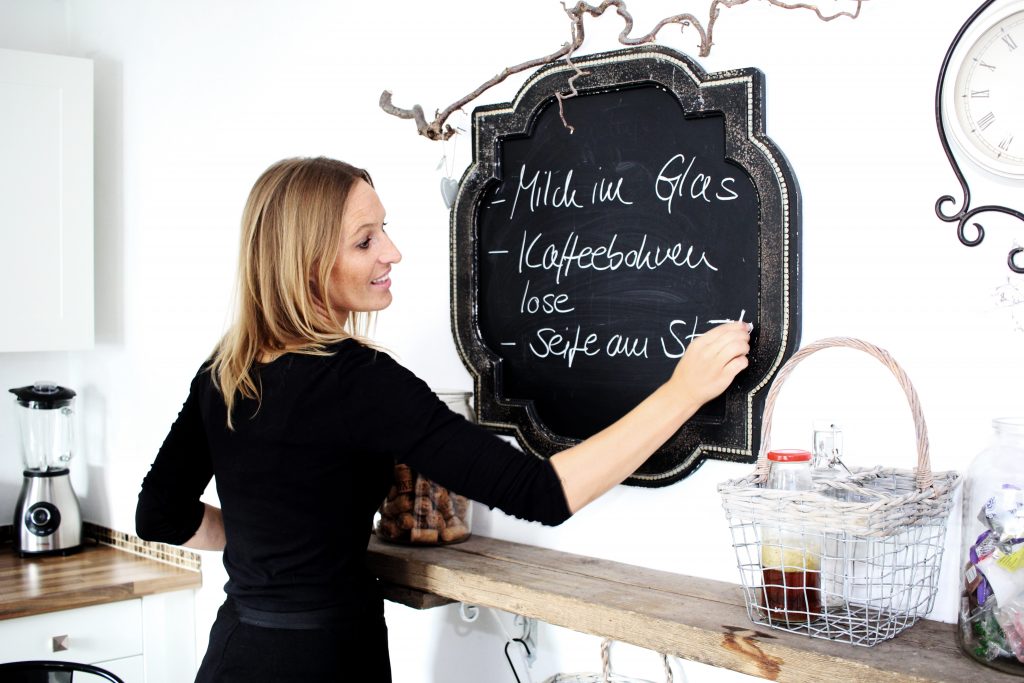 - Milch im Glas
- Kaffeebohnen
lose
- Seife am